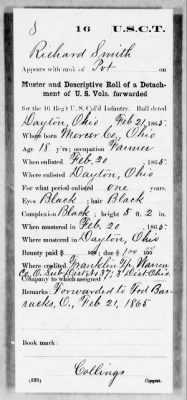 S 16 U.S.C.T.
Richard Smith
Appears with rank of Pvt. on
Muster and Descriptive Roll of a Detach-
ment of U. S. Vols. forwarded
for the 16 Reg't U. S. Col'd Infantry. Roll dated
Dayton, Ohio, Feb 21, 1865.
Where born Mercer Co., Ohio
Age 18 y'rs; occupation Farmer
When enlisted Feb. 20, 1865.
Where enlisted Dayton, Ohio
For what period enlisted one years.
Eyes Black; hair Black
Complexion Black; height 5 ft. 2 in.
When mustered in Feb. 20, 1865.
Where mustered in Dayton, Ohio
Bounty paid $ 100; due $ 100
Where credited Franklin Tp. Warren
Co. O. Sub. Dist. No 37; 3" Dist. Ohio
Company to which assigned
Remarks: Forwarded to Tod Bar-
racks, O., Feb 21, 1865
Book mark:
Collings
(339) Copyist.